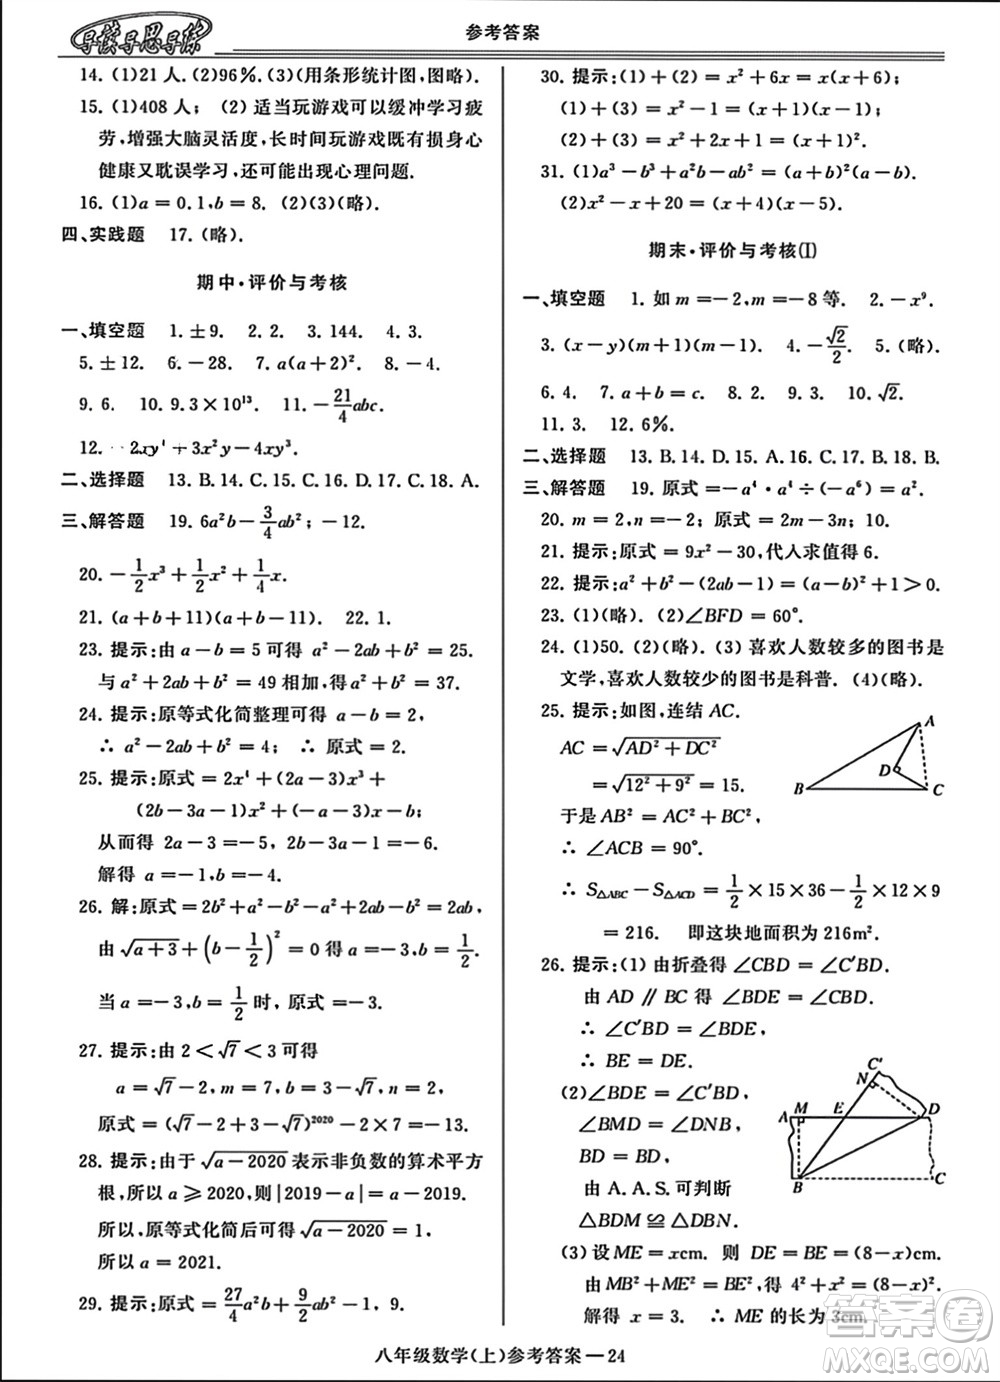 导读导思导练
参考答案
14. (1)21 人. (2)96%. (3)(用条形统计图,图略).
15. (1)408 人; (2) 适当玩游戏可以缓冲学习疲
劳,增强大脑灵活度,长时间玩游戏既有损身心
健康又耽误学习,还可能出现心理问题.
16. (1)a = 0.1,b = 8. (2)(3)(略).
四、实践题 17. (略).
期中·评价与考核
一、填空题 1. ±9. 2. 2. 3. 144. 4. 3.
5. ±12. 6. −28. 7. a(a+2)². 8. −4.
9. 6. 10. 9.3×10¹³. 11. −21/4abc.
12. −2xy⁴+3x²y−xy³.
二、选择题 13. B. 14. C. 15. C. 16. D. 17. C. 18. A.
三、解答题 19. 6a²b−3/4ab²; −12.
20. −1/2x³+1/2x²+1/4x.
21. (a+b+11)(a+b−11). 22. 1.
23. 提示:由 a−b = 5 可得 a²−2ab+b² = 25.
与 a²+2ab+b² = 49 相加,得 a²+b² = 37.
24. 提示:原等式化简整理可得 a−b = 2,
∴ a²−2ab+b² = 4; ∴ 原式 = 2.
25. 提示:原式 = 2x⁴+(2a−3)x³+
(2b−3a−1)x²+(−a−3b)x−b;
从而得 2a−3 =−5, 2b−3a−1 =−6.
解得 a =−1,b =−4.
26. 解:原式 = 2b²+a²−b²−a²+2ab−b² = 2ab,
由 √(a+3)+(b−1/2)² = 0 得 a =−3,b = 1/2.
当 a =−3,b = 1/2 时,原式 =−3.
27. 提示:由 2 < √7 < 3 可得
a = √7−2, m = 7, b = 3−√7,
原式 = (√7−2+3−√7)²⁰²⁰−2×7 =−13.
28. 提示:由于 √(a−2020) 表示非负数的算术平方
根,所以 a ⩾ 2020,则|2019−a| = a−2019.
所以,原等式化简后可得 √(a−2020) = 1,
所以 a = 2021.
29. 提示:原式 = 27/4a²b+9/2ab² = 1, 9.
30. 提示:(1)+(2) = x²+6x = x(x+6);
(1)+(3) = x²−1 = (x+1)(x−1);
(2)+(3) = x²+2x+1 = (x+1)².
31. (1)a³−b³+a²b−ab² = (a−b)(a+b)².
(2)x²−x+20 = (x+4)(x−5).
期末·评价与考核(Ⅰ)
一、填空题 1. 如 m =−2,m =−8 等. 2. −x⁹.
3. (x−y)(m+1)(m−1). 4. −√2/2. 5. (略).
6. 4. 7. a+b = c. 8. 2. 9. 3. 10. √2.
11. 3. 12. 6%.
二、选择题 13. B. 14. D. 15. A. 16. C. 17. B. 18. B.
三、解答题 19. 原式 =−a⁴·a⁴÷(−a⁶) = a².
20. m = 2,n =−2; 原式 = 2m−3n; 10.
21. 提示:原式 = 9x²−30,代人求值得 6.
22. 提示:a²+b²−(2ab−1) = (a−b)²+1>0.
23. (1)(略). (2)∠BFD = 60°.
24. (1)50. (2)(略). (3) 喜欢人数较多的图书是
文学,喜欢人数较少的图书是科普. (4)(略).
25. 提示:如图,连结 AC.
AC = √(AD²+DC²)
= √(12²+9²) = 15.
于是 AB² = AC²+BC²,
∴ ∠ACB = 90°.
A
D
B
C
∴ S△ABC−S△ACD = 1/2×15×36−1/2×12×9
= 216. 即这块地面积为 216m².
26. 提示:(1) 由折叠得 ∠CBD = ∠C′BD.
由 AD ∥ BC 得 ∠BDE = ∠CBD,
∴ ∠C′BD = ∠BDE,
∴ BE = DE.
(2)∠BDE = ∠C′BD,
∠BMD = ∠DNB,
BD = BD,
由 A. A. S. 可判断
△BDM ≌ △DBN.
C′
N
A
M
E
D
B
C
(3) 设 ME = xcm. 则 DE = BE = (8−x)cm.
由 MB²+ME² = BE² 得 4²+x² = (8−x)².
解得 x = 3. ∴ ME 的长为 3cm.
八年级数学(上)参考答案—24
答案圈
MXQE.COM